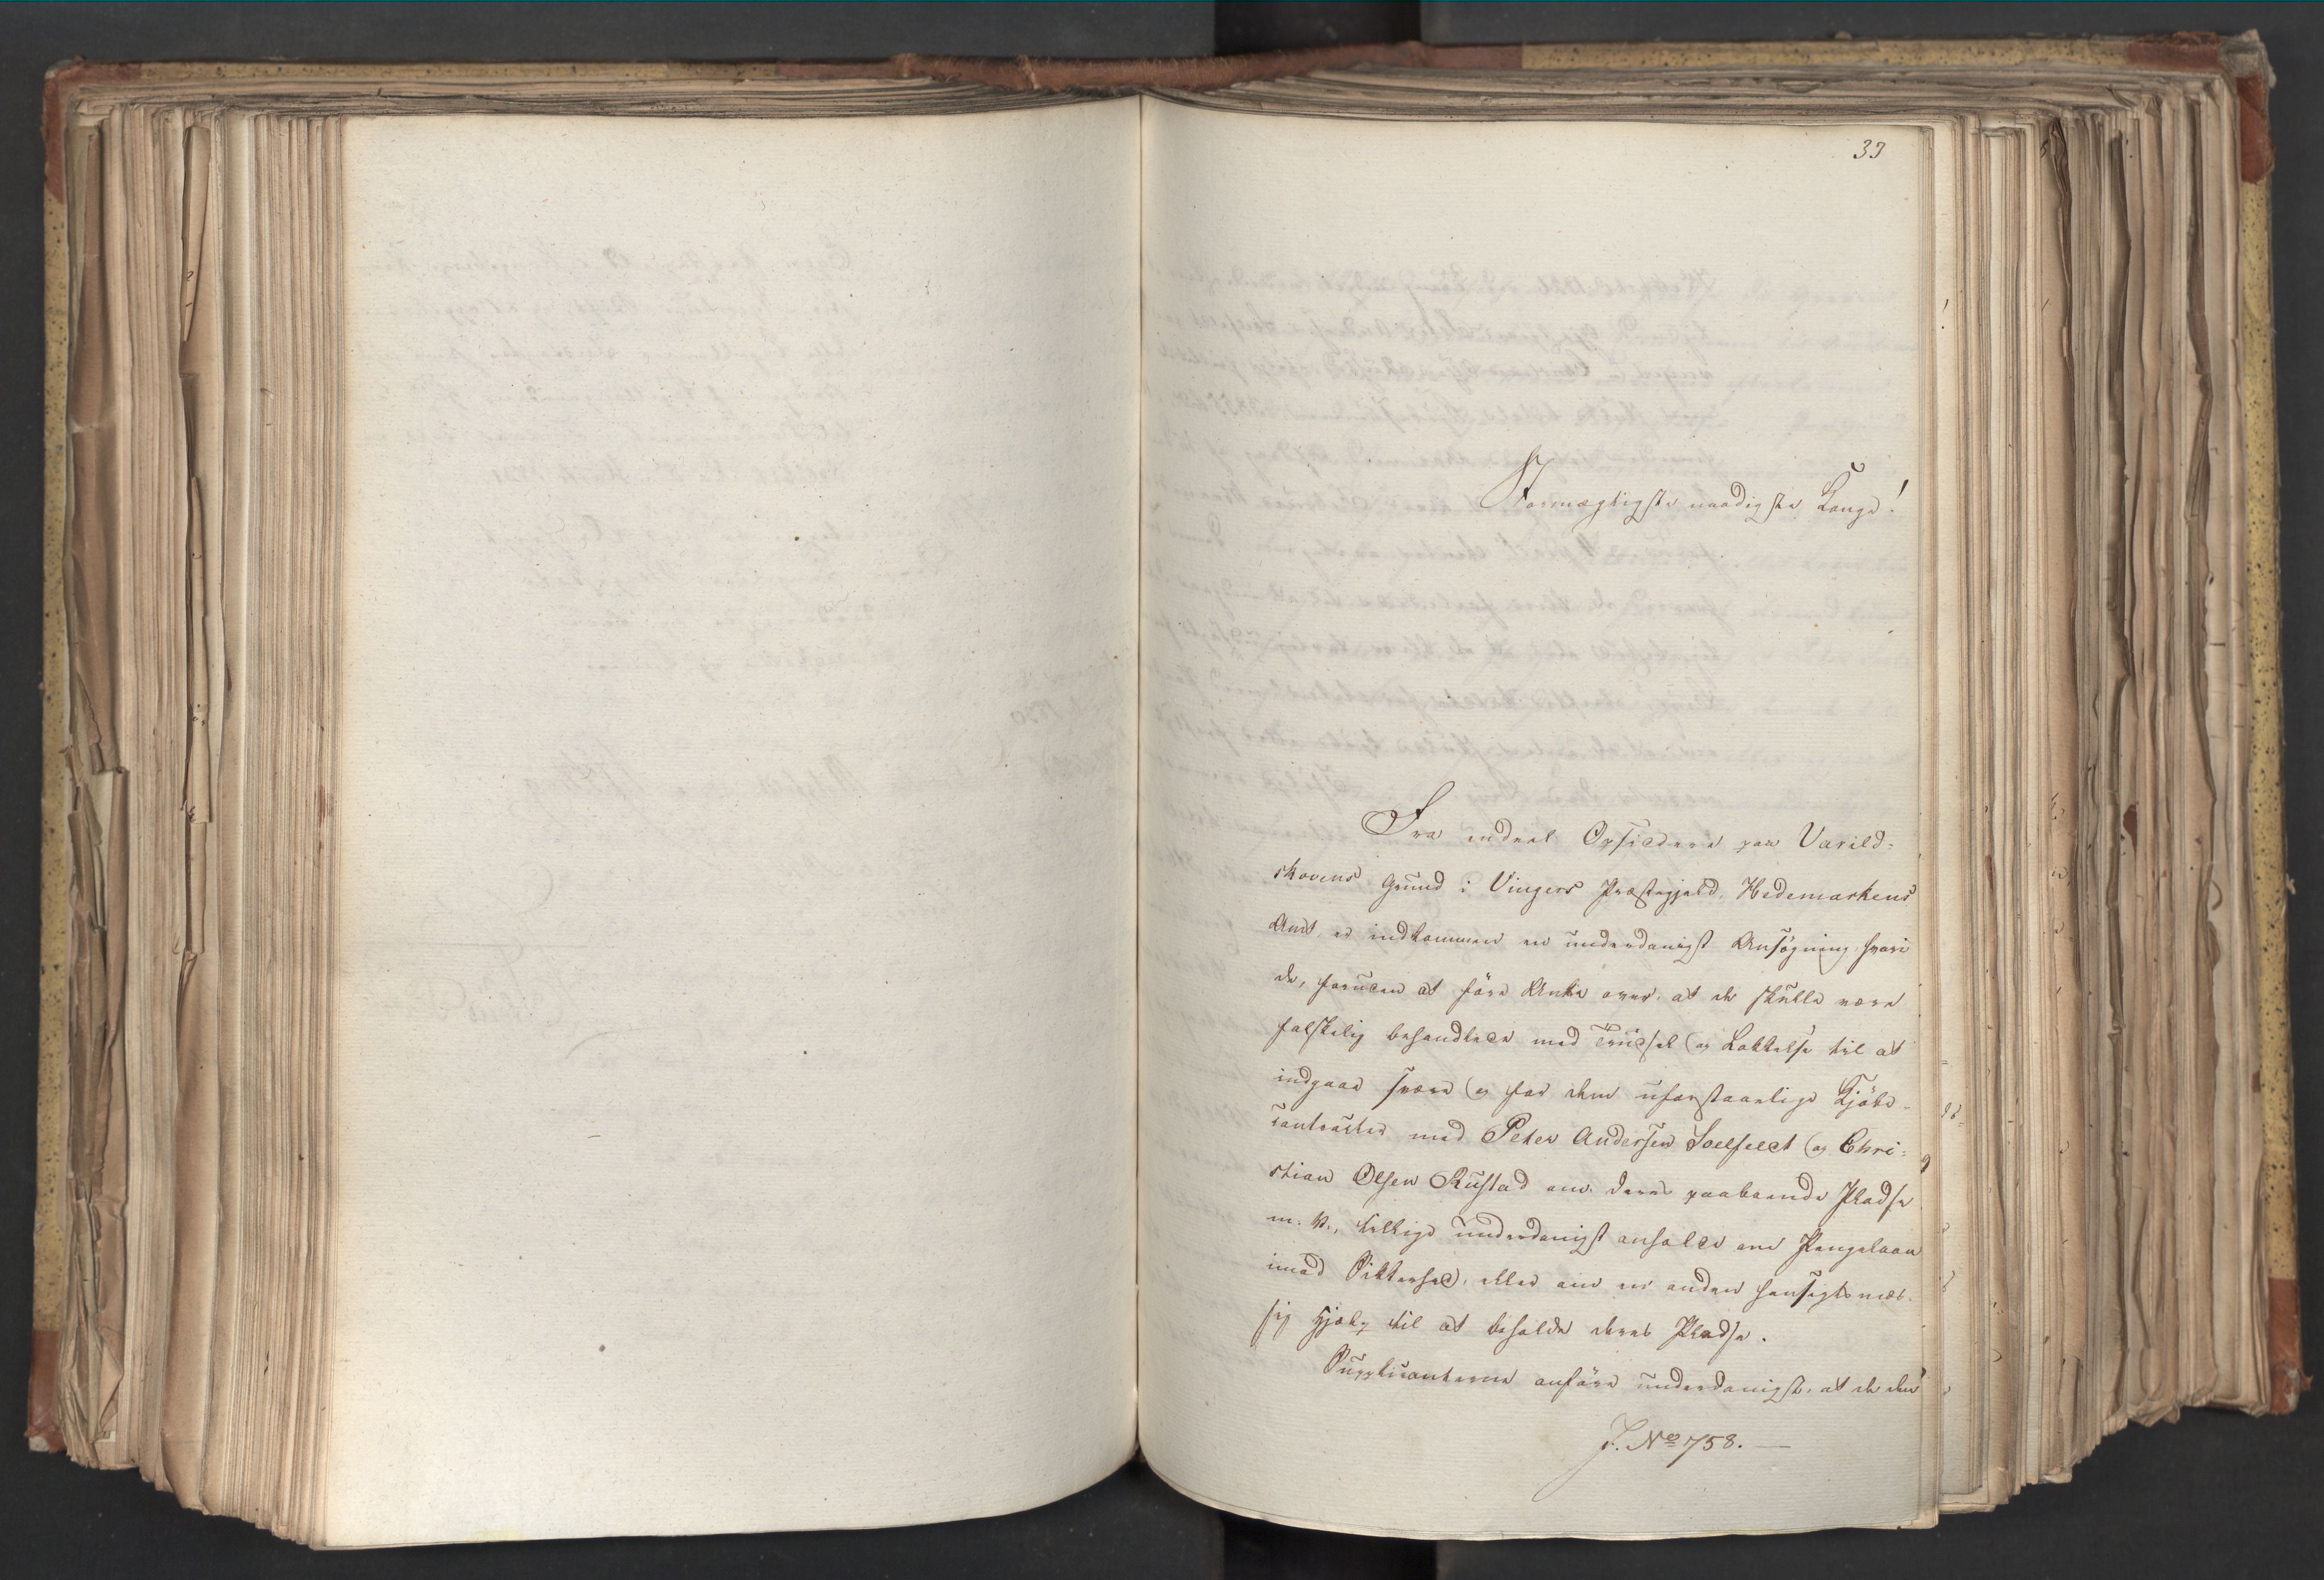 33
Stormægtigste naadigste Konge!
Fra endeel Opsiddere paa Varild-
skovens Grund i Vingers Præstegjeld, Hedemarkens
Amt, er indkommen en underdanigst Ansøgning, hvori
de, foruden at føre Anke over, at de skulle være
falskelig behandlede med Trudsel og Lokkelse til at
indgaae svære og for dem uforstaaelige Kjöbe-
contracter med Peter Andersen Soelseet og Chri-
stian Olsen Rustad om deres paaboende Pladse
m. V., tillige underdanigst anholde om Pengelaan
imod Sikkerhed, eller om en anden hensigtsmæs-
sig Hjælp til at beholde deres Pladse.
Supplicanterne anføre underdanigst, at de den
J. No 758.